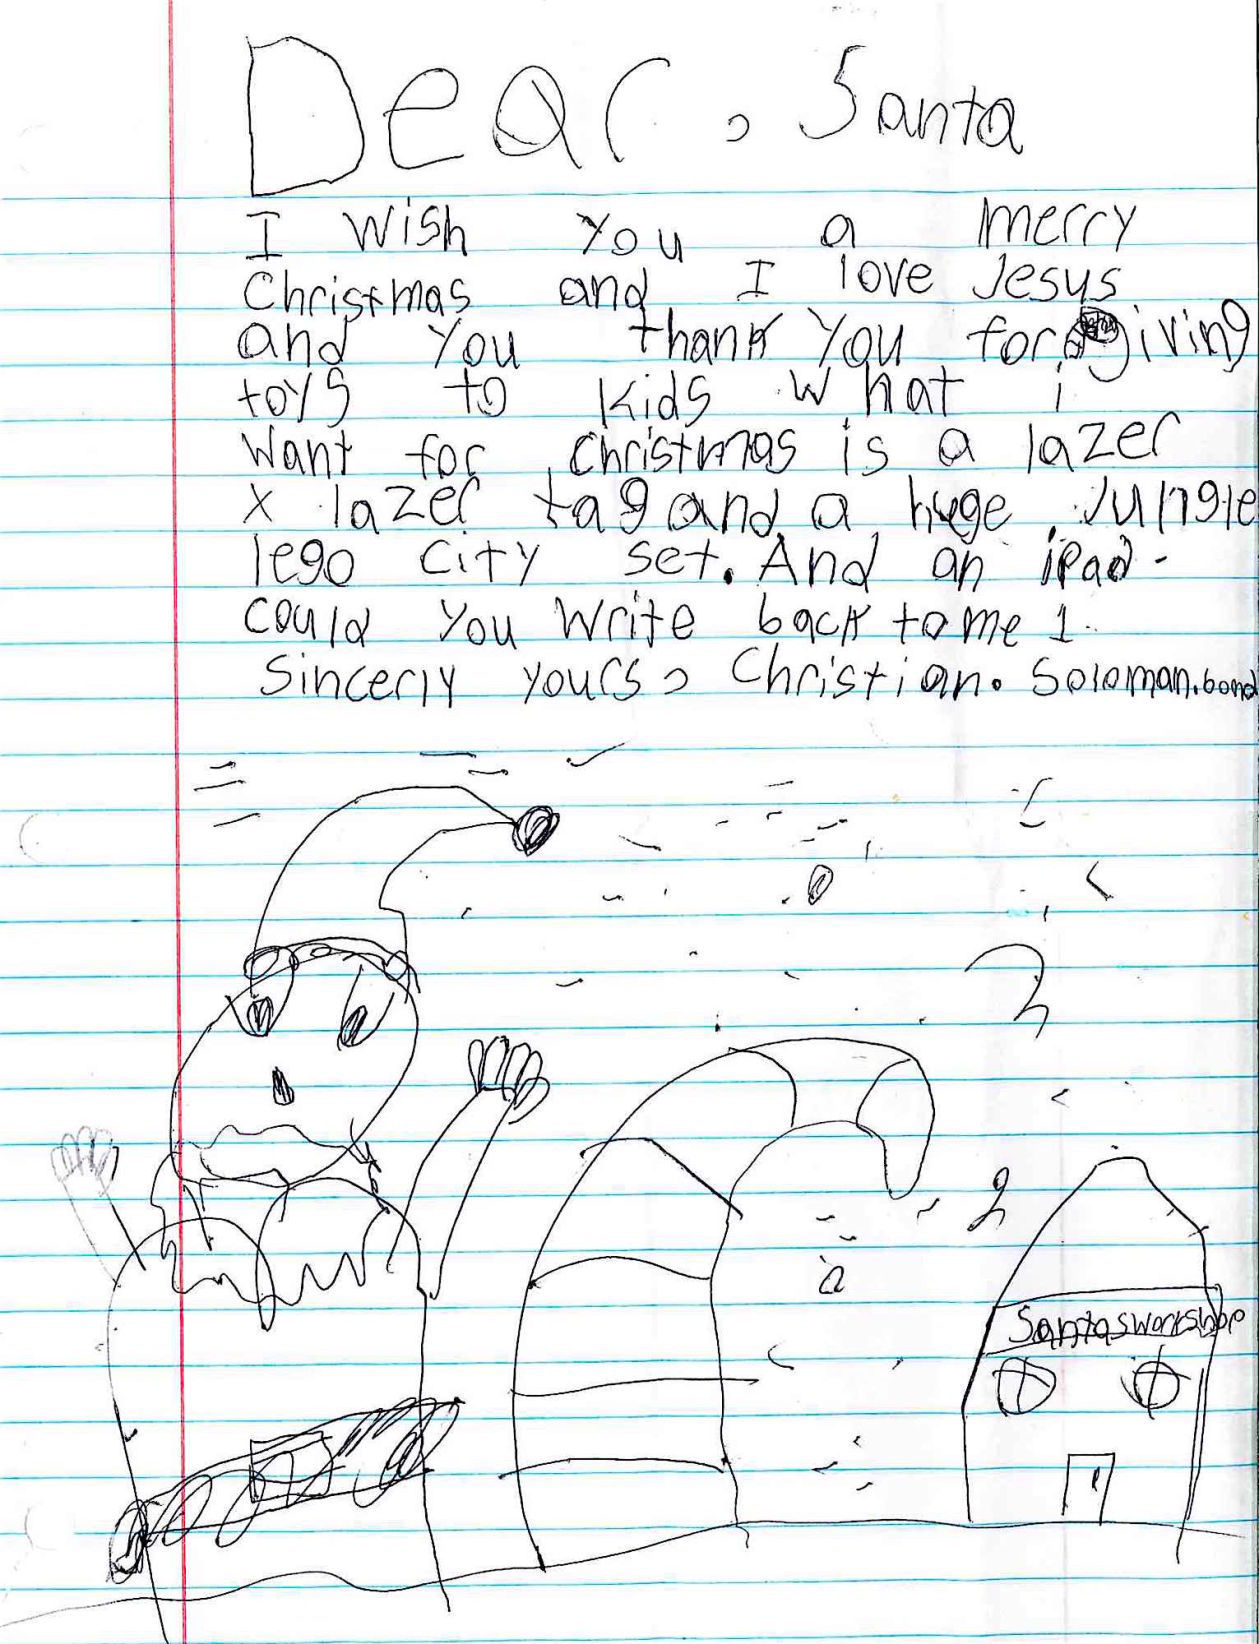 Dear, Santa
I wish you a merry
Christmas and I love Jesus
and you thank you for giving
toys to kids what i
want for christmas is a lazer
x lazer tag and a huge Jungle
lego city set. And an ipad.
could you write back to me 1
Sincerly yours, Christian. Soloman.bond
Santas workshop